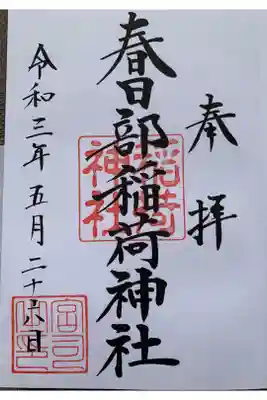 奉拝
春日部稲荷神社
稲荷神社
令和三年五月二十六日